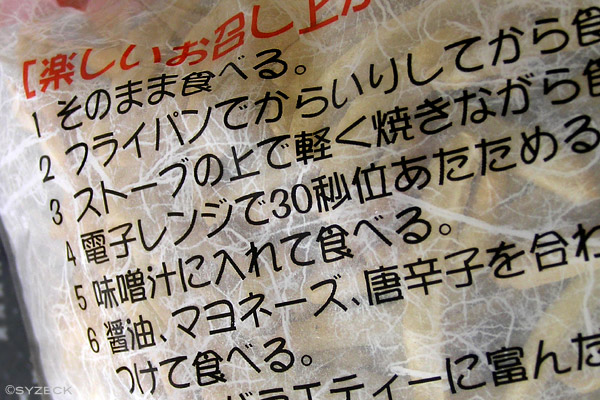 [楽しいお召し上が
1 そのまま食べる。
2 フライパンでからいりしてから食
3 ストーブの上で軽く焼きながら食
4 電子レンジで30秒位あたためる
5 味噌汁に入れて食べる。
6 醤油、マヨネーズ、唐辛子を合わ
つけて食べる。
バラエティーに富んだ
©SYZECK